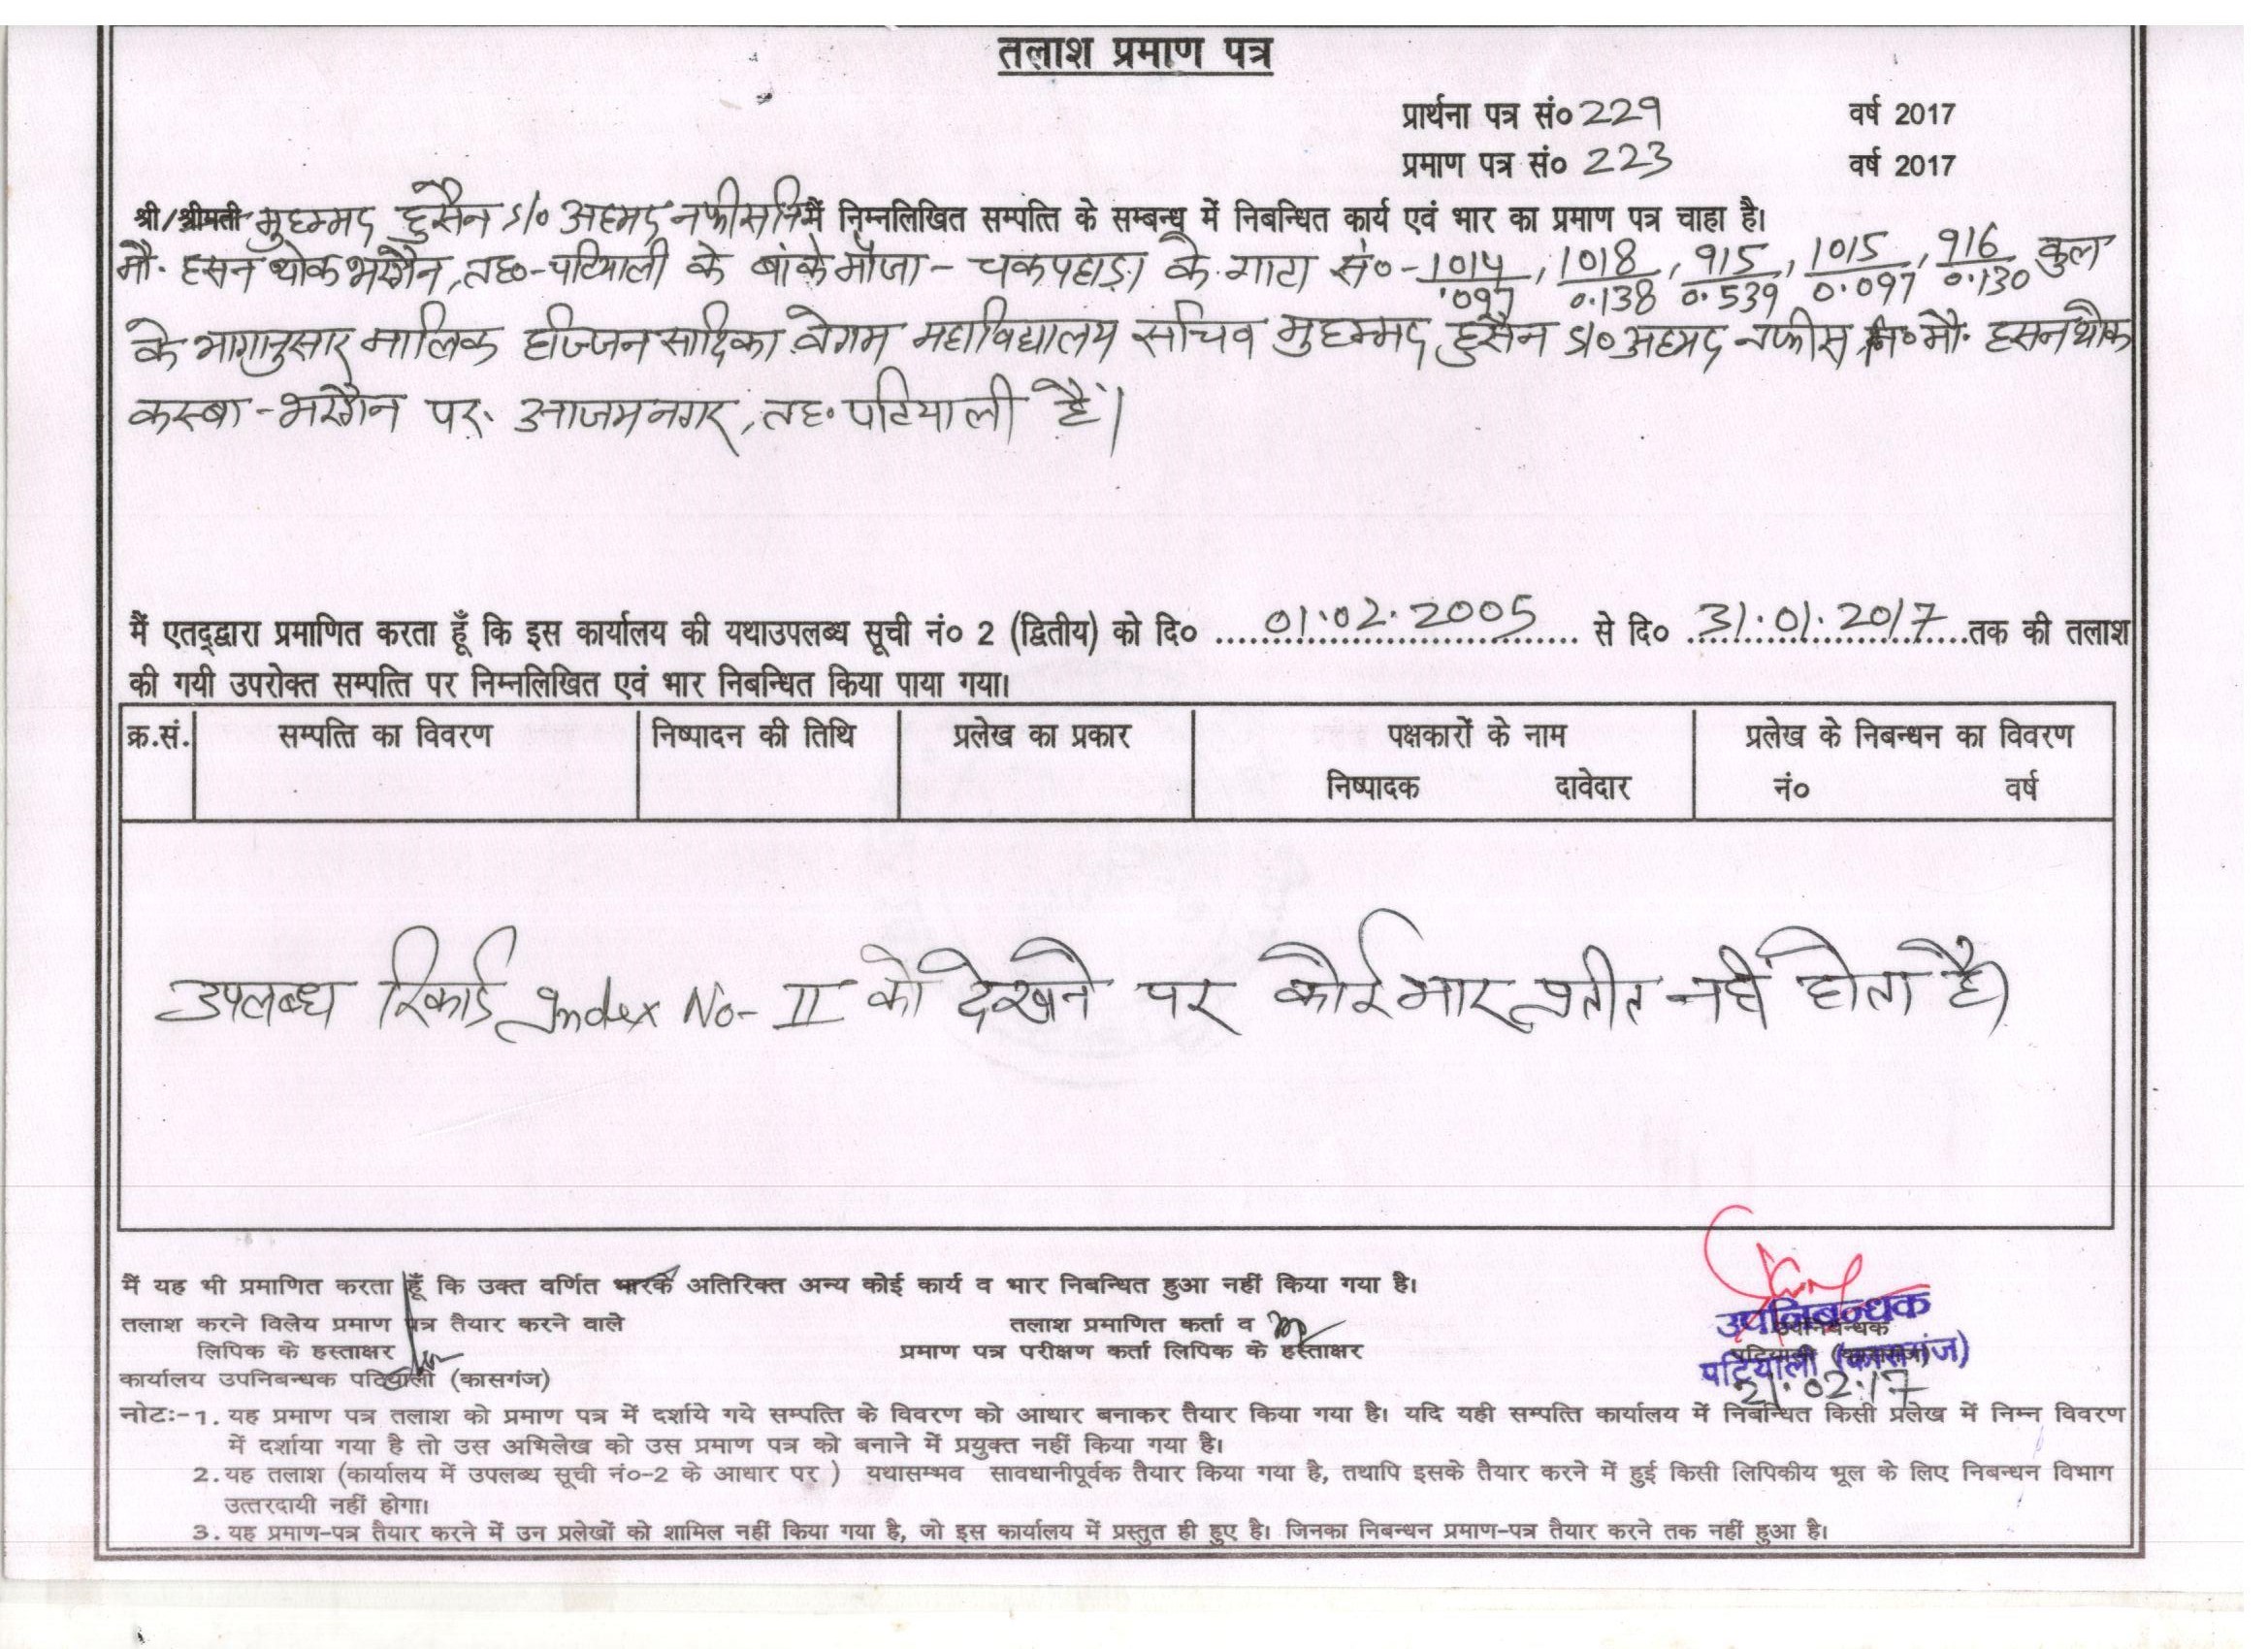 तलाश प्रमाण पत्र
प्रार्थना पत्र सं० 229 वर्ष 2017
प्रमाण पत्र सं० 223 वर्ष 2017
श्री/श्रीमती मुहम्मद हुसैन S/० अहमद नफीस नि० में निम्नलिखित सम्पत्ति के सम्बन्ध में निबन्धित कार्य एवं भार का प्रमाण पत्र चाहा है।
मौ. हसन थोक भरगैन, तह०-पटियाली के बांके मौजा - चकपहाड़ा के गाटा सं०- 1014/.097, 1018/0.138, 915/0.539, 1015/0.097, 916/0.130 कुल
के भागानुसार मालिक हज्जिन सादिका वेगम महाविद्यालय सचिव मुहम्मद हुसैन S/० अहमद नफीस नि० मौ. हसन थोक
कस्बा - भरगैन पर. आजमनगर, तह. पटियाली है।
मैं एतद्द्वारा प्रमाणित करता हूँ कि इस कार्यालय की यथाउपलब्ध सूची नं० 2 (द्वितीय) को दि० 01.02.2005 से दि० 31.01.2017 तक की तलाश
की गयी उपरोक्त सम्पत्ति पर निम्नलिखित एवं भार निबन्धित किया पाया गया।
क्र.सं. सम्पत्ति का विवरण निष्पादन की तिथि प्रलेख का प्रकार पक्षकारों के नाम प्रलेख के निबन्धन का विवरण
निष्पादक दावेदार नं० वर्ष
उपलब्ध रिकार्ड Index No- II को देखने पर कोई भार प्रतीत नहीं होता है।
मैं यह भी प्रमाणित करता हूँ कि उक्त वर्णित भारके अतिरिक्त अन्य कोई कार्य व भार निबन्धित हुआ नहीं किया गया है।
तलाश करने विलेय प्रमाण पत्र तैयार करने वाले तलाश प्रमाणित कर्ता व उपनिबन्धक
लिपिक के हस्ताक्षर प्रमाण पत्र परीक्षण कर्ता लिपिक के हस्ताक्षर पटियाली (कासगंज)
कार्यालय उपनिबन्धक पटियाली (कासगंज) 21.02.17
नोटः-1. यह प्रमाण पत्र तलाश को प्रमाण पत्र में दर्शाये गये सम्पत्ति के विवरण को आधार बनाकर तैयार किया गया है। यदि यही सम्पत्ति कार्यालय में निबन्धित किसी प्रलेख में निम्न विवरण
में दर्शाया गया है तो उस अभिलेख को उस प्रमाण पत्र को बनाने में प्रयुक्त नहीं किया गया है।
2. यह तलाश (कार्यालय में उपलब्ध सूची नं०-2 के आधार पर ) यथासम्भव सावधानीपूर्वक तैयार किया गया है, तथापि इसके तैयार करने में हुई किसी लिपिकीय भूल के लिए निबन्धन विभाग
उत्तरदायी नहीं होगा।
3. यह प्रमाण-पत्र तैयार करने में उन प्रलेखों को शामिल नहीं किया गया है, जो इस कार्यालय में प्रस्तुत ही हुए है। जिनका निबन्धन प्रमाण-पत्र तैयार करने तक नहीं हुआ है।